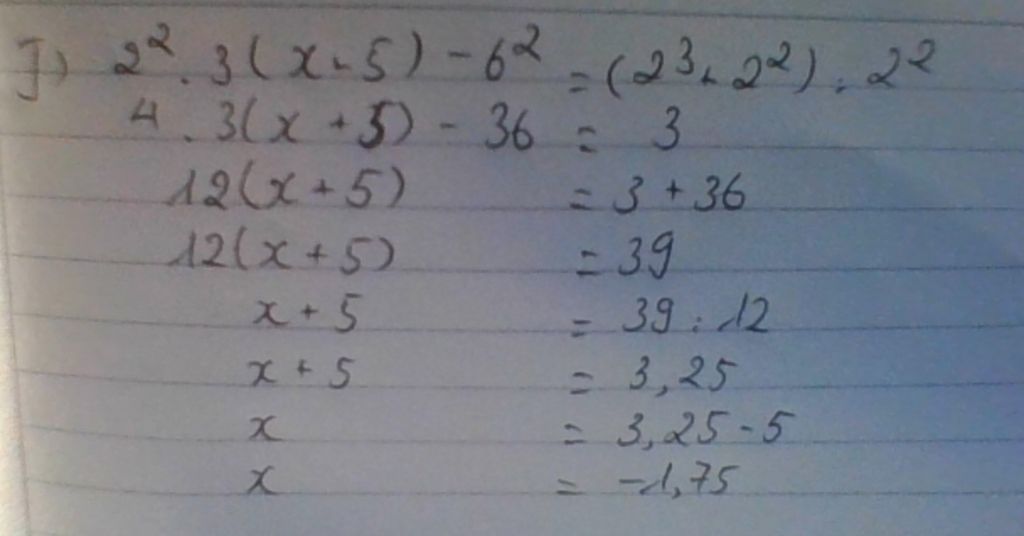 J) 2² . 3(x + 5) - 6² = (2³ + 2²) : 2²
4 . 3(x + 5) - 36 = 3
12(x + 5) = 3 + 36
12(x + 5) = 39
x + 5 = 39 : 12
x + 5 = 3,25
x = 3,25 - 5
x = -1,75